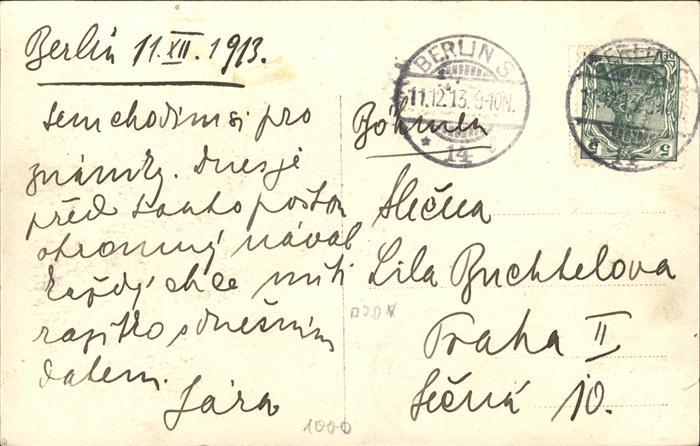 Berlin 11.XII.1913.
sem chodím si pro
známky. Dnes je
před touto poštou
ohromný nával
každý chce míti
razítko s dnešním
datem.
Jára
BERLIN S.
11.12.13. 9-10N.
* 14
Böhmen
Slečna
Lila Buchtelova
Praha II
Sečná 10.
5
1000